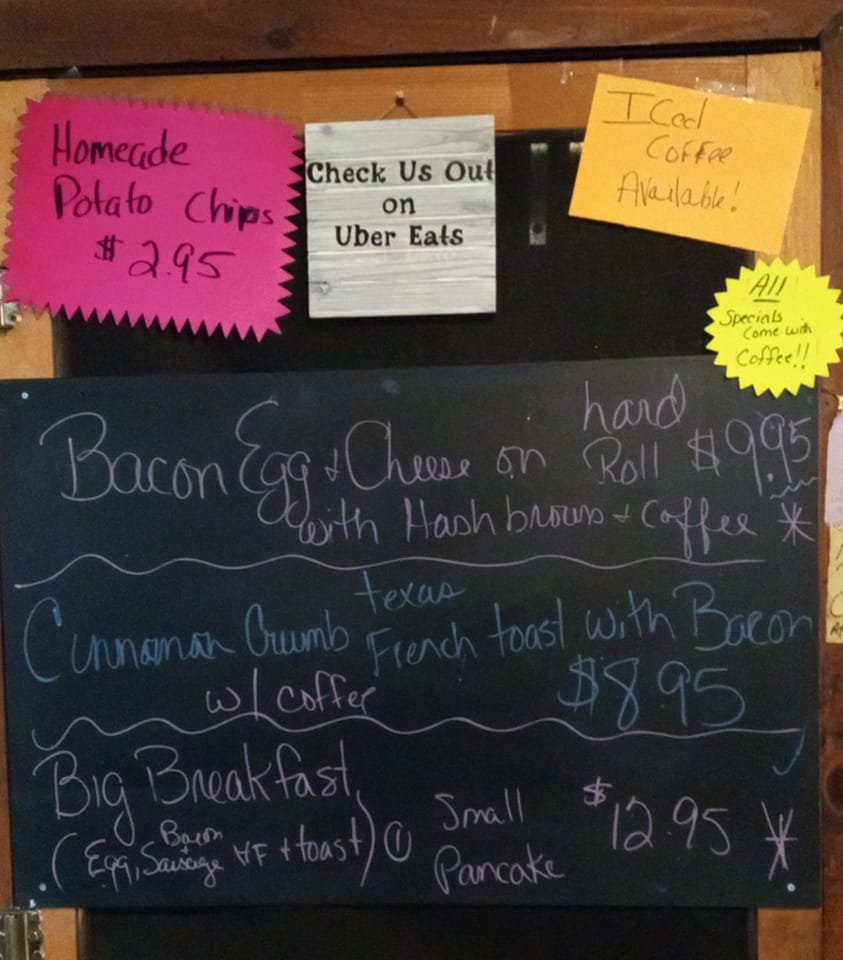 Homeade
Potato Chips
$2.95
Check Us Out
on
Uber Eats
ICed
Coffee
Available!
All
Specials
Come with
Coffee!!
Bacon Egg & Cheese on hard Roll $9.95
with Hash browns + Coffee *
Cinnaman Crumb texas French toast with Bacon
w/ coffee $8.95
Big Breakfast
(Egg, Bacon + Sausage HF + toast) 1 Small Pancake $12.95 *